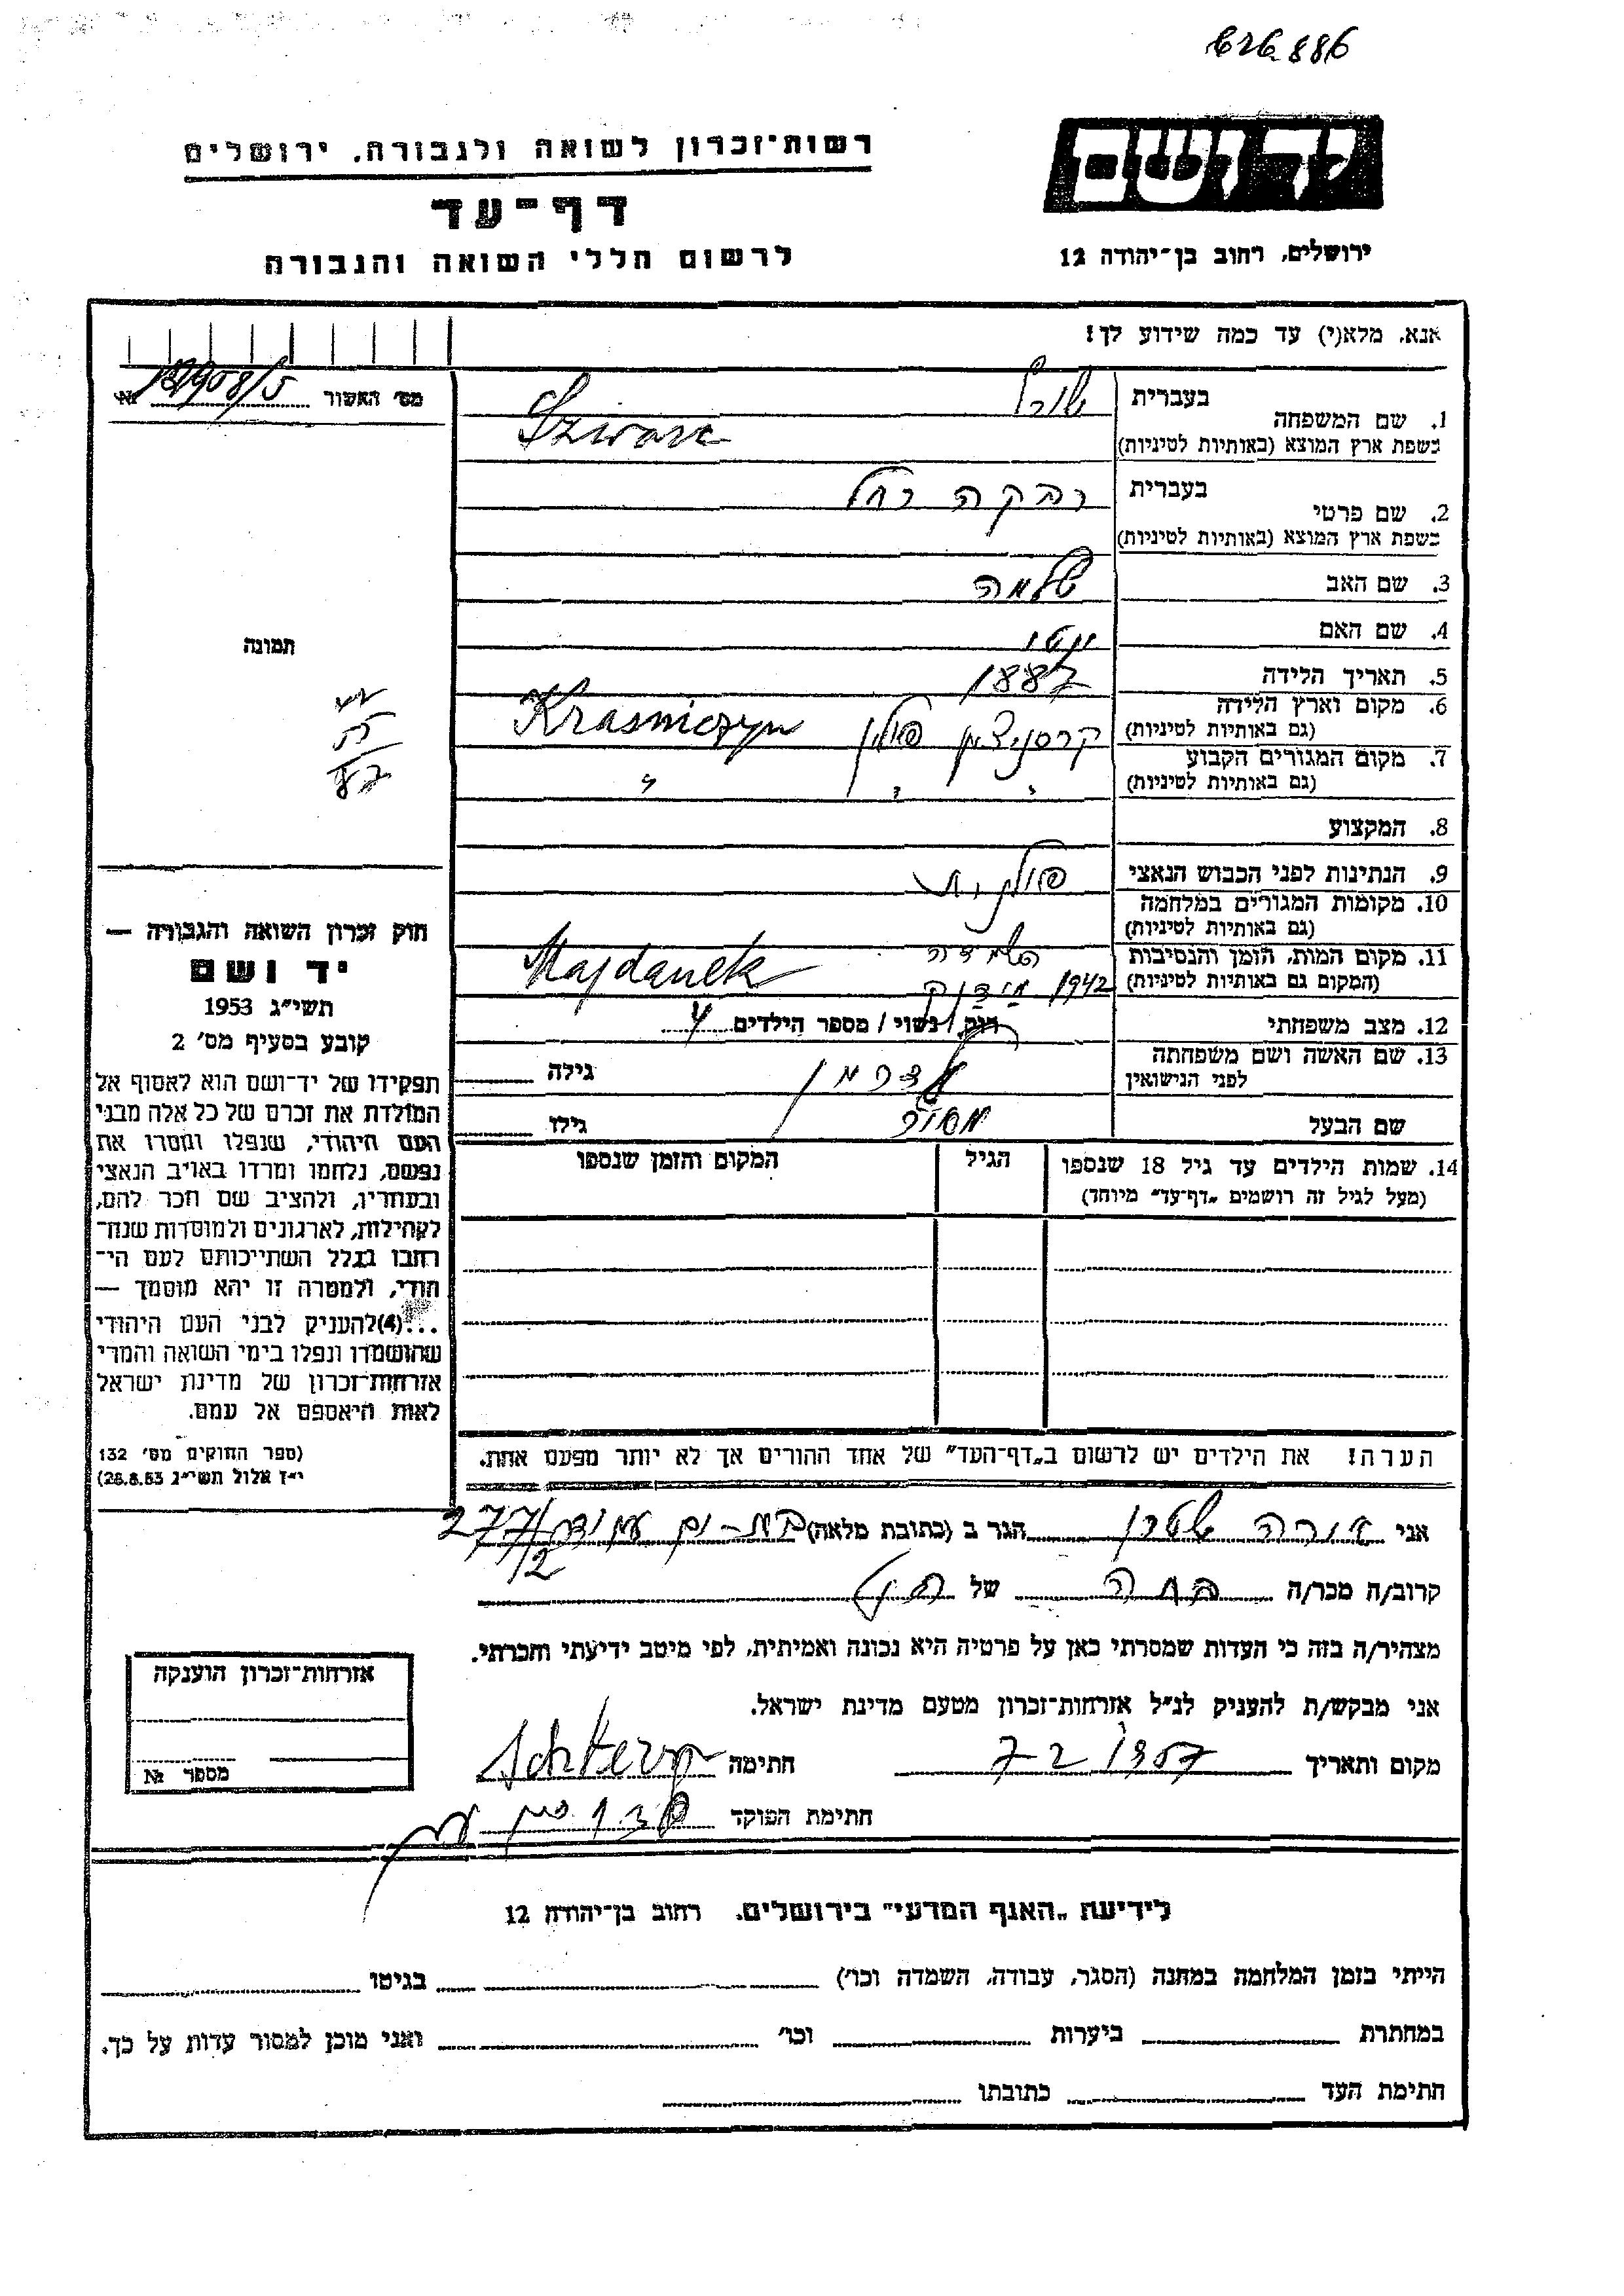 886
רשות־זכרון לשואה ולגבורה, ירושלים
יד ושם
דף־עד
לרשום חללי השואה והגבורה
ירושלים, רחוב בן־יהודה 12
אנא, מלא(י) עד כמה שידוע לך!
מס׳ האשור 121908/5 №
1. שם המשפחה
בעברית
בשפת ארץ המוצא (באותיות לטיניות) Szwarc
2. שם פרטי
בעברית רבקה רחל
בשפת ארץ המוצא (באותיות לטיניות)
3. שם האב שלמה
4. שם האם
תמונה
5. תאריך הלידה 1887
6. מקום וארץ הלידה
(גם באותיות לטיניות) קרסניצין פולין Krasniczyn
7. מקום המגורים הקבוע
(גם באותיות לטיניות) " " "
8. המקצוע
9. הנתינות לפני הכבוש הנאצי פולנית
10. מקומות המגורים במלחמה
(גם באותיות לטיניות)
11. מקום המות, הזמן והנסיבות השמדה
(המקום גם באותיות לטיניות) 1942 מידנק Majdanek
12. מצב משפחתי רווק / נשוי / מספר הילדים 4
13. שם האשה ושם משפחתה
לפני הנישואין גילה
שם הבעל גילו
14. שמות הילדים עד גיל 18 שנספו
(מעל לגיל זה רושמים „דף־עד״ מיוחד)
הגיל
המקום והזמן שנספו
חוק זכרון השואה והגבורה —
יד ושם
תשי״ג 1953
קובע בסעיף מס׳ 2
תפקידו של יד־ושם הוא לאסוף אל
המולדת את זכרם של כל אלה מבני
העם היהודי, שנפלו ומסרו את
נפשם, נלחמו ומרדו באויב הנאצי
ובעוזריו, ולהציב שם וזכר להם,
לקהילות, לארגונים ולמוסדות שנח־
רבו בגלל השתייכותם לעם הי־
הודי, ולמטרה זו יהא מוסמך —
...(4) להעניק לבני העם היהודי
שהושמדו ונפלו בימי השואה והמרי
אזרחות־זכרון של מדינת ישראל
לאות היאספם אל עמם.
(ספר החוקים מס׳ 132
י״ז אלול תשי״ג 28.8.53)
הערה! את הילדים יש לרשום ב„דף־העד״ של אחד ההורים אך לא יותר מפעם אחת.
אני שטרן הגר ב (כתובת מלאה) בת-ים 277/2
קרוב/ה מכר/ה של
מצהיר/ה בזה כי העדות שמסרתי כאן על פרטיה היא נכונה ואמיתית, לפי מיטב ידיעתי והכרתי.
אני מבקש/ת להעניק לנ״ל אזרחות־זכרון מטעם מדינת ישראל.
מקום ותאריך 7 2 1957 חתימה
חתימת הפוקד
אזרחות־זכרון הוענקה
מספר №
לידיעת „האגף המדעי״ בירושלים, רחוב בן־יהודה 12
הייתי בזמן המלחמה במחנה (הסגר, עבודה, השמדה וכו׳) בגיטו
במחתרת ביערות וכו׳ ואני מוכן למסור עדות על כך.
חתימת העד כתובתו